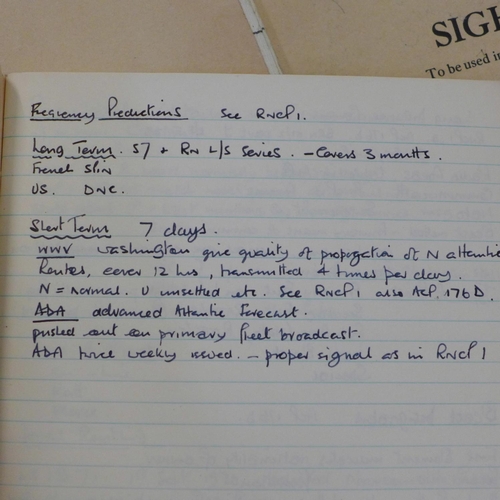 SIGH
To be used in
Frequency Predictions see RNCP1.
Long Term. S7 + RN L/S series. - Covers 3 months.
French
US. DNC.
Short Term 7 days.
WWV Washington give quality of propogation of N atlantic
Routes, cover 12 hrs, transmitted 4 times per day.
N = normal. U unsettled etc. See RNCP1 also ACP. 176D.
ADA advanced Atlantic Forecast.
pushed out on primary fleet broadcast.
ADA twice weekly issued. - proper signal as in RNCP1